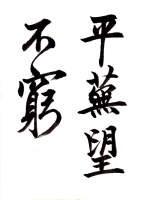 平蕪望
不窮